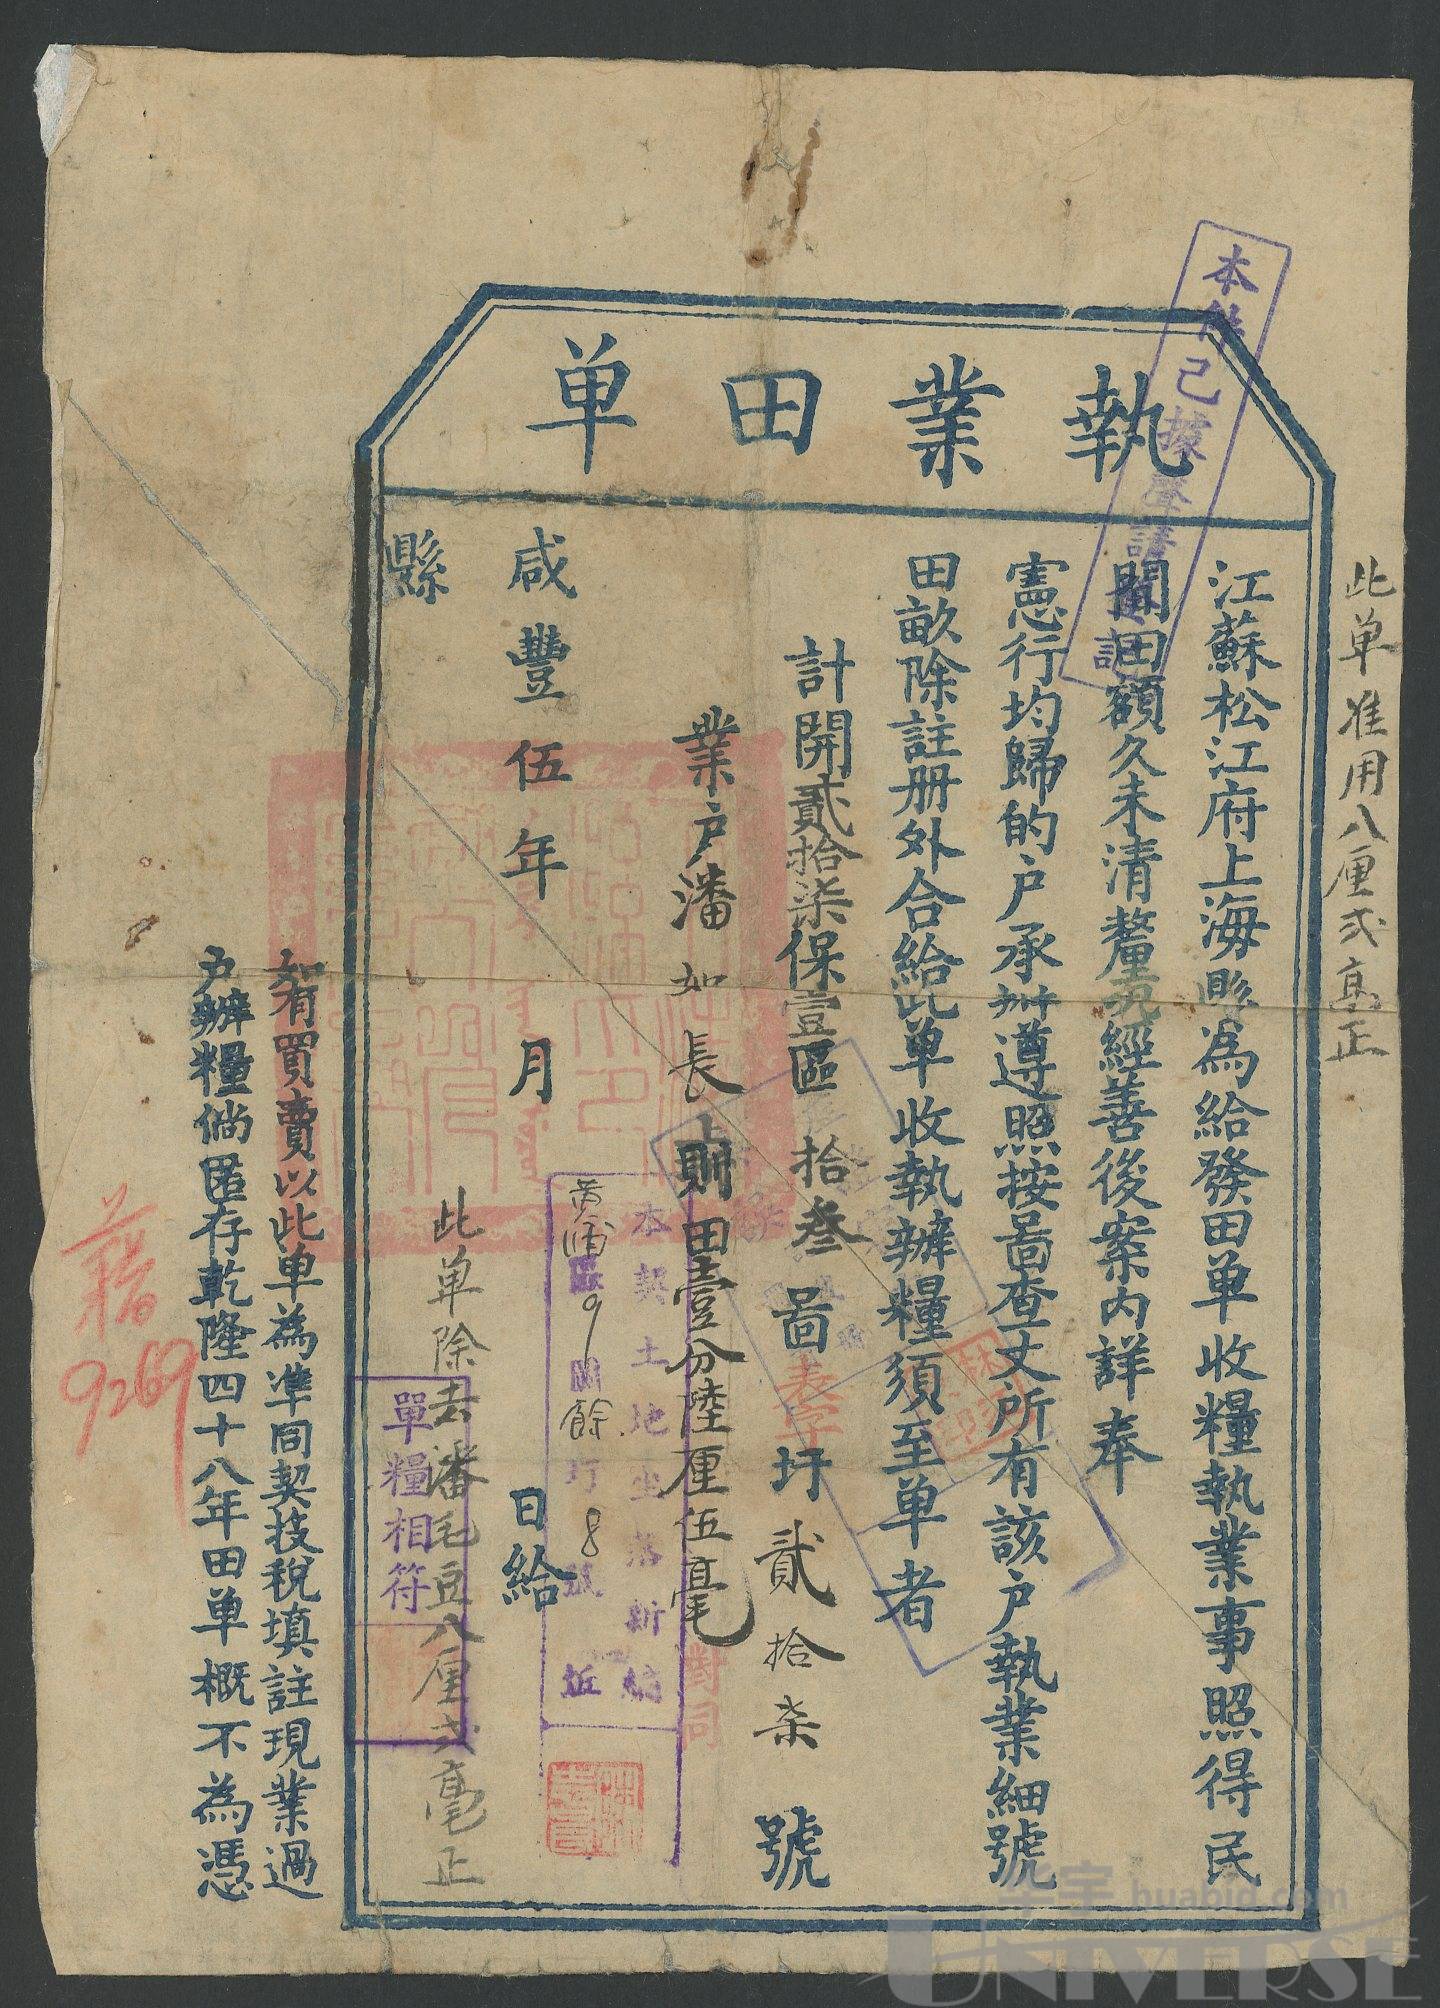 執業田单
此单准用八厘弍毫正
江蘇松江府上海縣為給發田单收糧執業事照得民
間田額久未清釐现經善後案内詳奉
憲行均歸的户承辦遵照按啚查丈所有該户執業細號
田畝除註册外合給此单收執辦糧須至单者
計開貳拾柒保壹區拾叁啚圩貳拾柒號
業户潘如長上則田壹分陸厘伍毫
咸豐伍年月日給
縣
此单除去潘毛豆八厘弍毫正
如有買賣以此单為準同契投稅填註現業過
户辦糧倘匿存乾隆四十八年田单概不為憑
本件已據聲請
本契土地坐落新編
黃浦區9圖餘圩8號坵
單糧相符
對同
藉
9269
华宇 huabid.com
UNIVERSE